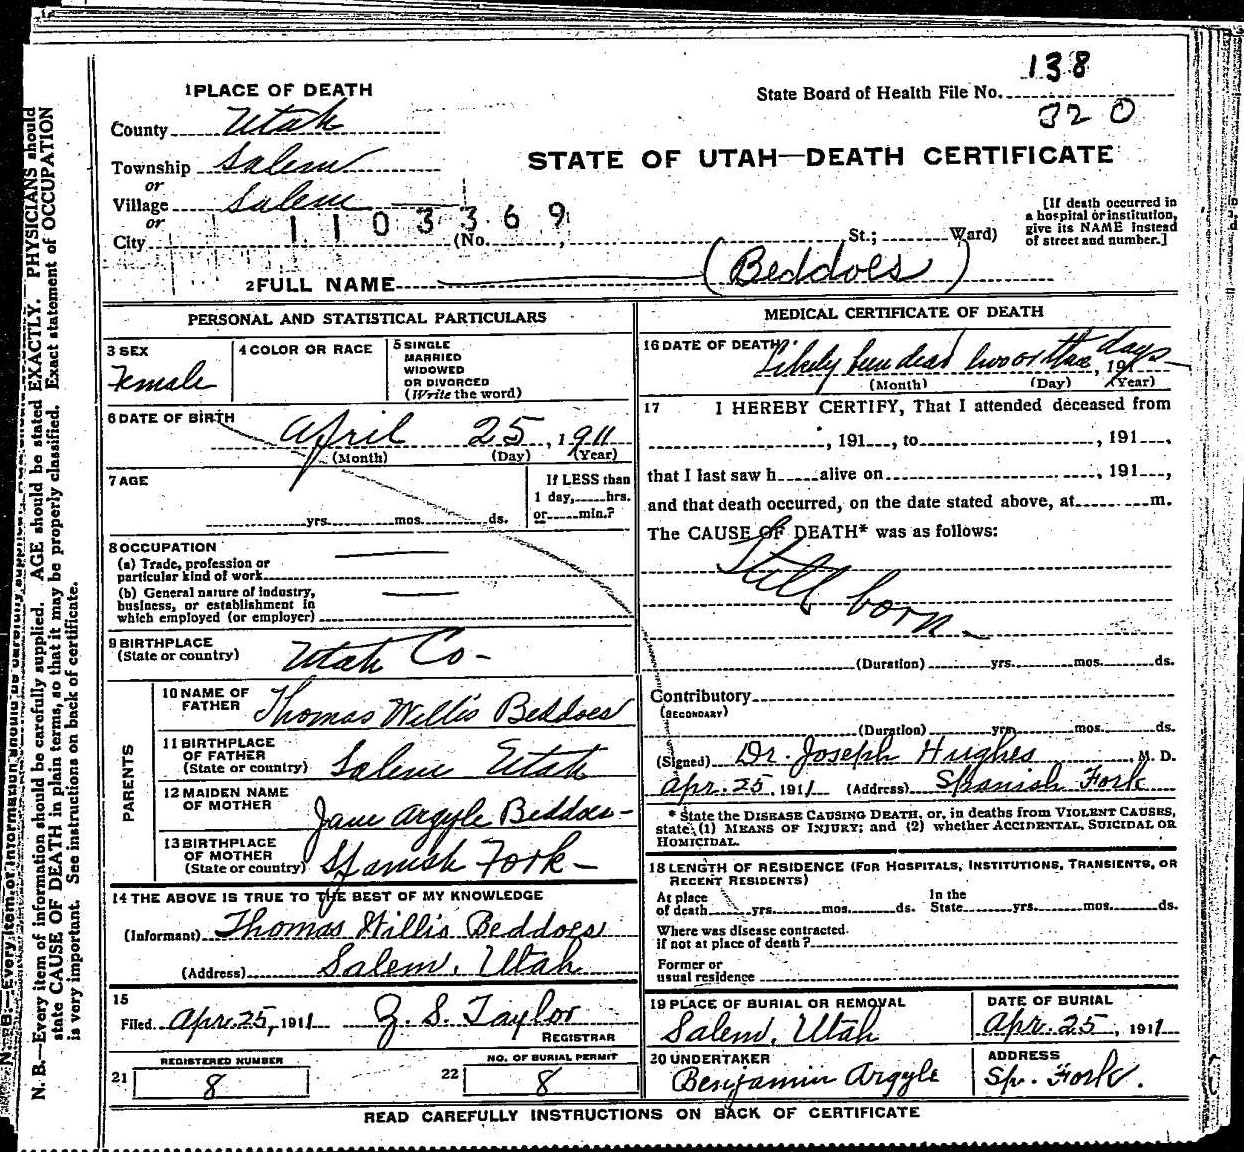 138
State Board of Health File No.
320
1 PLACE OF DEATH
County Utah
Township Salem
or
Village Salem
or
City (No. , St.; Ward)
1103369
STATE OF UTAH—DEATH CERTIFICATE
[If death occurred in
a hospital or institution,
give its NAME instead
of street and number.]
2 FULL NAME (Beddoes)
PERSONAL AND STATISTICAL PARTICULARS
3 SEX
Female
4 COLOR OR RACE
5 SINGLE
MARRIED
WIDOWED
OR DIVORCED
(Write the word)
6 DATE OF BIRTH
April 25, 1911
(Month) (Day) (Year)
7 AGE
yrs. mos. ds.
If LESS than
1 day, hrs.
or min.?
8 OCCUPATION
(a) Trade, profession or
particular kind of work
(b) General nature of industry,
business, or establishment in
which employed (or employer)
9 BIRTHPLACE
(State or country) Utah Co-
PARENTS
10 NAME OF
FATHER Thomas Willis Beddoes
11 BIRTHPLACE
OF FATHER
(State or country) Salem Utah
12 MAIDEN NAME
OF MOTHER Jane Argyle Beddoes-
13 BIRTHPLACE
OF MOTHER
(State or country) Spanish Fork-
14 THE ABOVE IS TRUE TO THE BEST OF MY KNOWLEDGE
(Informant) Thomas Willis Beddoes
(Address) Salem, Utah
15
Filed Apr. 25, 1911 Z. S. Taylor
REGISTRAR
REGISTERED NUMBER
21 8
NO. OF BURIAL PERMIT
22 8
MEDICAL CERTIFICATE OF DEATH
16 DATE OF DEATH Likely been dead two or three days, 191
(Month) (Day) (Year)
17 I HEREBY CERTIFY, That I attended deceased from
, 191 , to , 191 ,
that I last saw h alive on , 191 ,
and that death occurred, on the date stated above, at m.
The CAUSE OF DEATH* was as follows:
Still born-
(Duration) yrs. mos. ds.
Contributory
(SECONDARY)
(Duration) yrs. mos. ds.
(Signed) Dr. Joseph Hughes, M. D.
Apr. 25, 1911 (Address) Spanish Fork
* State the DISEASE CAUSING DEATH, or, in deaths from VIOLENT CAUSES,
state (1) MEANS OF INJURY; and (2) whether ACCIDENTAL, SUICIDAL OR
HOMICIDAL.
18 LENGTH OF RESIDENCE (FOR HOSPITALS, INSTITUTIONS, TRANSIENTS, OR
RECENT RESIDENTS)
At place
of death yrs. mos. ds.
In the
State yrs. mos. ds.
Where was disease contracted
if not at place of death?
Former or
usual residence
19 PLACE OF BURIAL OR REMOVAL
Salem, Utah
DATE OF BURIAL
Apr. 25, 1911
20 UNDERTAKER
Benjamin Argyle
ADDRESS
Sp. Fork.
READ CAREFULLY INSTRUCTIONS ON BACK OF CERTIFICATE
N. B.—Every item of information should be carefully supplied. AGE should be stated EXACTLY. PHYSICIANS should
state CAUSE OF DEATH in plain terms, so that it may be properly classified. Exact statement of OCCUPATION
is very important. See instructions on back of certificate.
N. B.—Every item of information should be carefully supplied